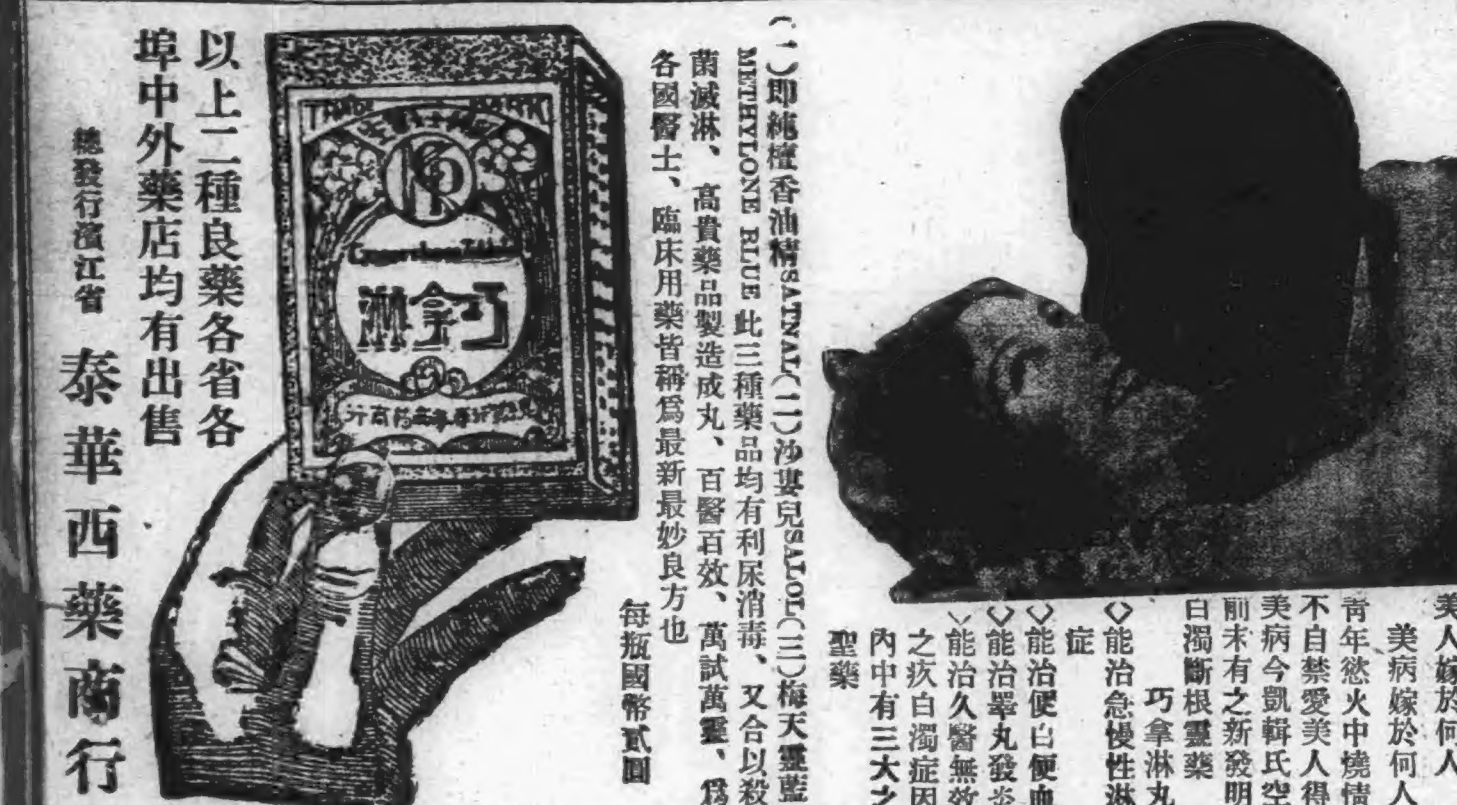 美人嫁於何人
美病嫁於何人
青年慾火中燒情
不自禁愛美人得
美病今凱輯氏空
前未有之新發明
白濁斷根靈藥
巧拿淋丸
◇能治急慢性淋
症
◇能治便白便血
◇能治睪丸發炎
◇能治久醫無效
之疚白濁症因
內中有三大之
聖藥
(一)即純檀香油精SATNAL(二)沙婁兒SALOL(三)梅天靈藍
METHYLONE BLUE此三種藥品均有利尿消毒、又合以殺
菌滅淋、高貴藥品製造成丸、百醫百效、萬試萬靈、爲
各國醫士、臨床用藥皆稱爲最新最妙良方也
每瓶國幣貳圓
TRADE MARK
巧拿淋
以上二種良藥各省各
埠中外藥店均有出售
總發行濱江省 泰華西藥商行